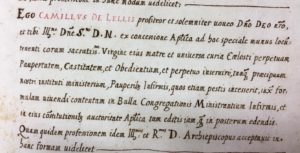 in hunc modum videlicet
EGO CAMILLVS DE LELLIS profiteor et solemniter uoueo Dño Deo nro,
et tibi Illmo Dño S. D. N. ex concessione Aplica ad hoc speciale munus locu
tenenti coram sacratissa. Virgine eius matre et uniuersa curia Cœlesti perpetuam
Paupertatem, Castitatem, et Obedientiam, et perpetuo inseruire, tanqz. præcipuum
nostri instituti ministerium, Pauperibs Infirmis, quos etiam pestis incesserit, iuxta for
mulam uiuendi contentam in Bulla Congregationis Ministrantium Infirmis, et
in eius constitutionibs auctoritate Aplica tam editis iam, qz in posterum edendis.
Quam quidem professionem idem Illmus et Rmus D. Archiepiscopus acceptauit in
hanc formam videlicet